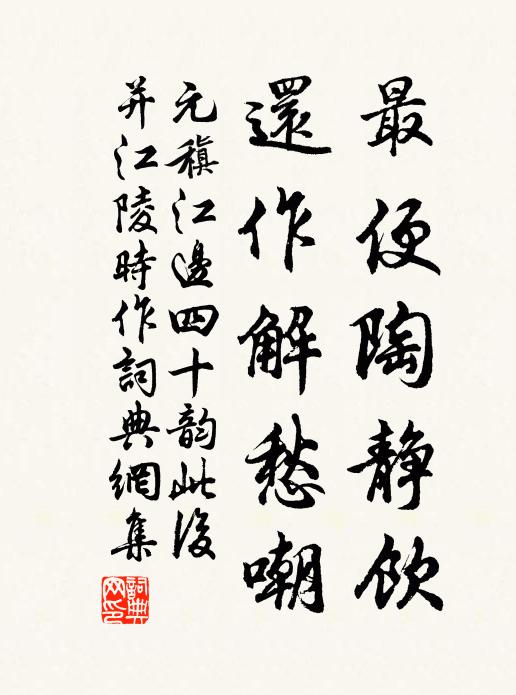 最便陶静飲
還作解愁嘲
元稹江邊四十韵此後
并江陵時作詞典網集
詞典
网印